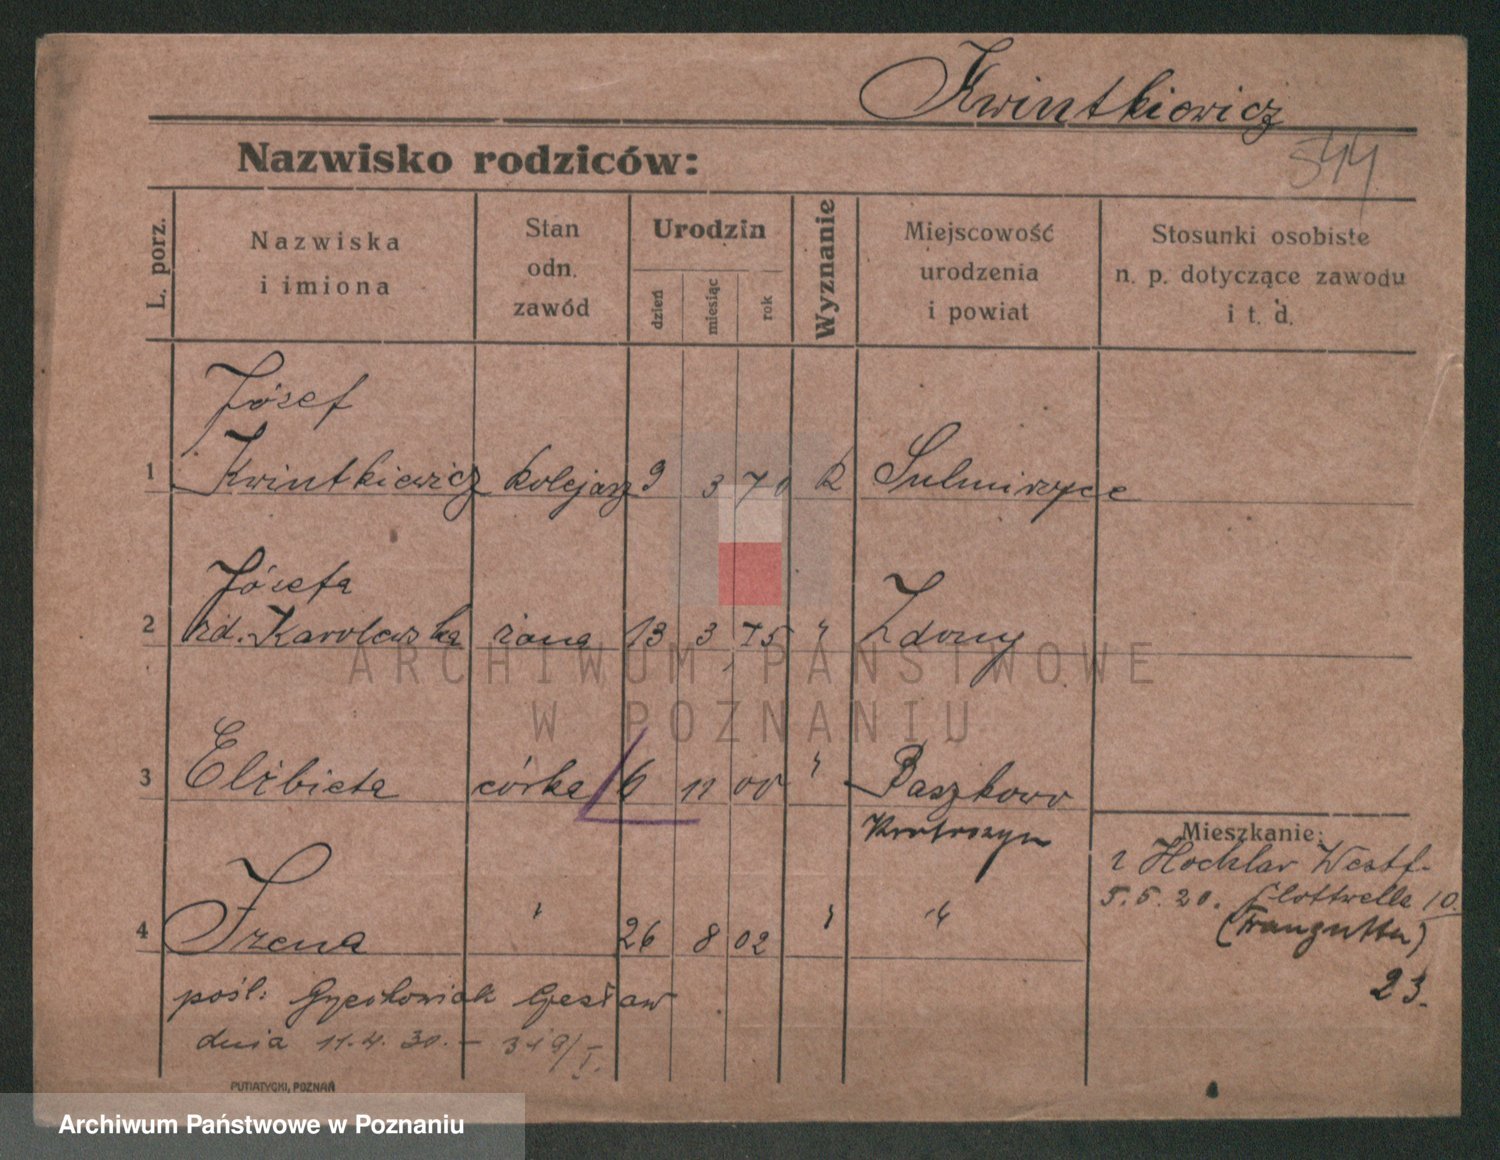 Kwintkiewicz
544
Nazwisko rodziców:
L. porz.
Nazwiska
i imiona
Stan
odn.
zawód
Urodzin
dzień
miesiąc
rok
Wyznanie
Miejscowość
urodzenia
i powiat
Stosunki osobiste
n. p. dotyczące zawodu
i t. d.
Józef
1 Kwintkiewicz kolejarz 9 3 70 k Sulmirzyce
Józefa
2 rd. Karolewska żona 13 3 75 " Zduny
ARCHIWUM PAŃSTWOWE
W POZNANIU
3 Elżbieta córka 6 11 00 " Baszkowo
Krotoszyn
Mieszkanie:
z Hochlar Westf.
5.5.20. Flottwella 10.
4 Irena " 26 8 02 " "
(Trauguta)
23.
pośl: Czesław
dnia 11.4.30. – 319/I.
PUTIATYCKI, POZNAŃ
Archiwum Państwowe w Poznaniu